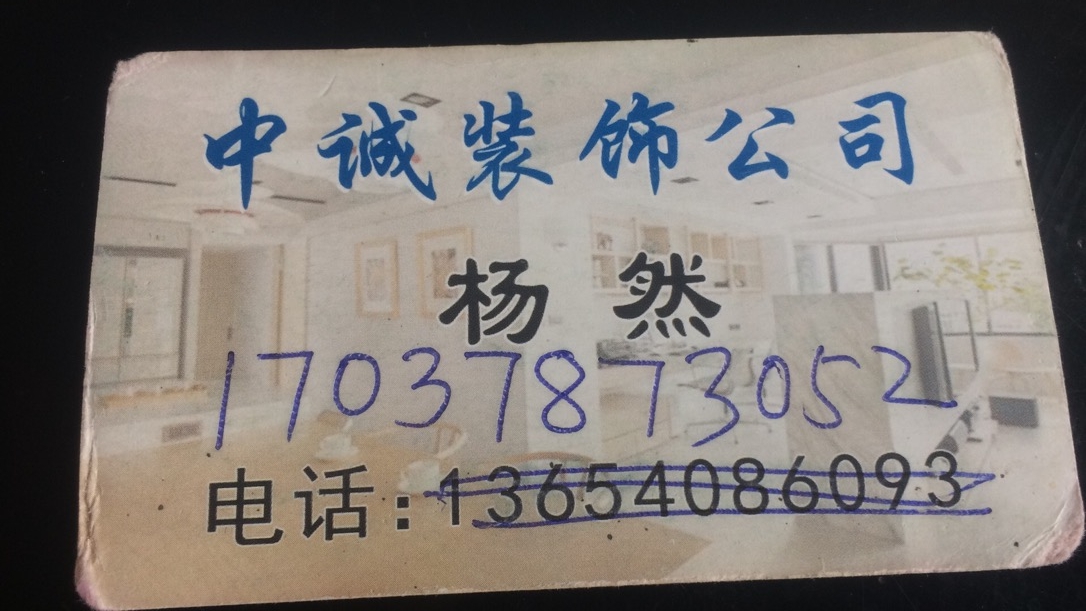 中诚装饰公司
杨然
17037873052
电话:13654086093